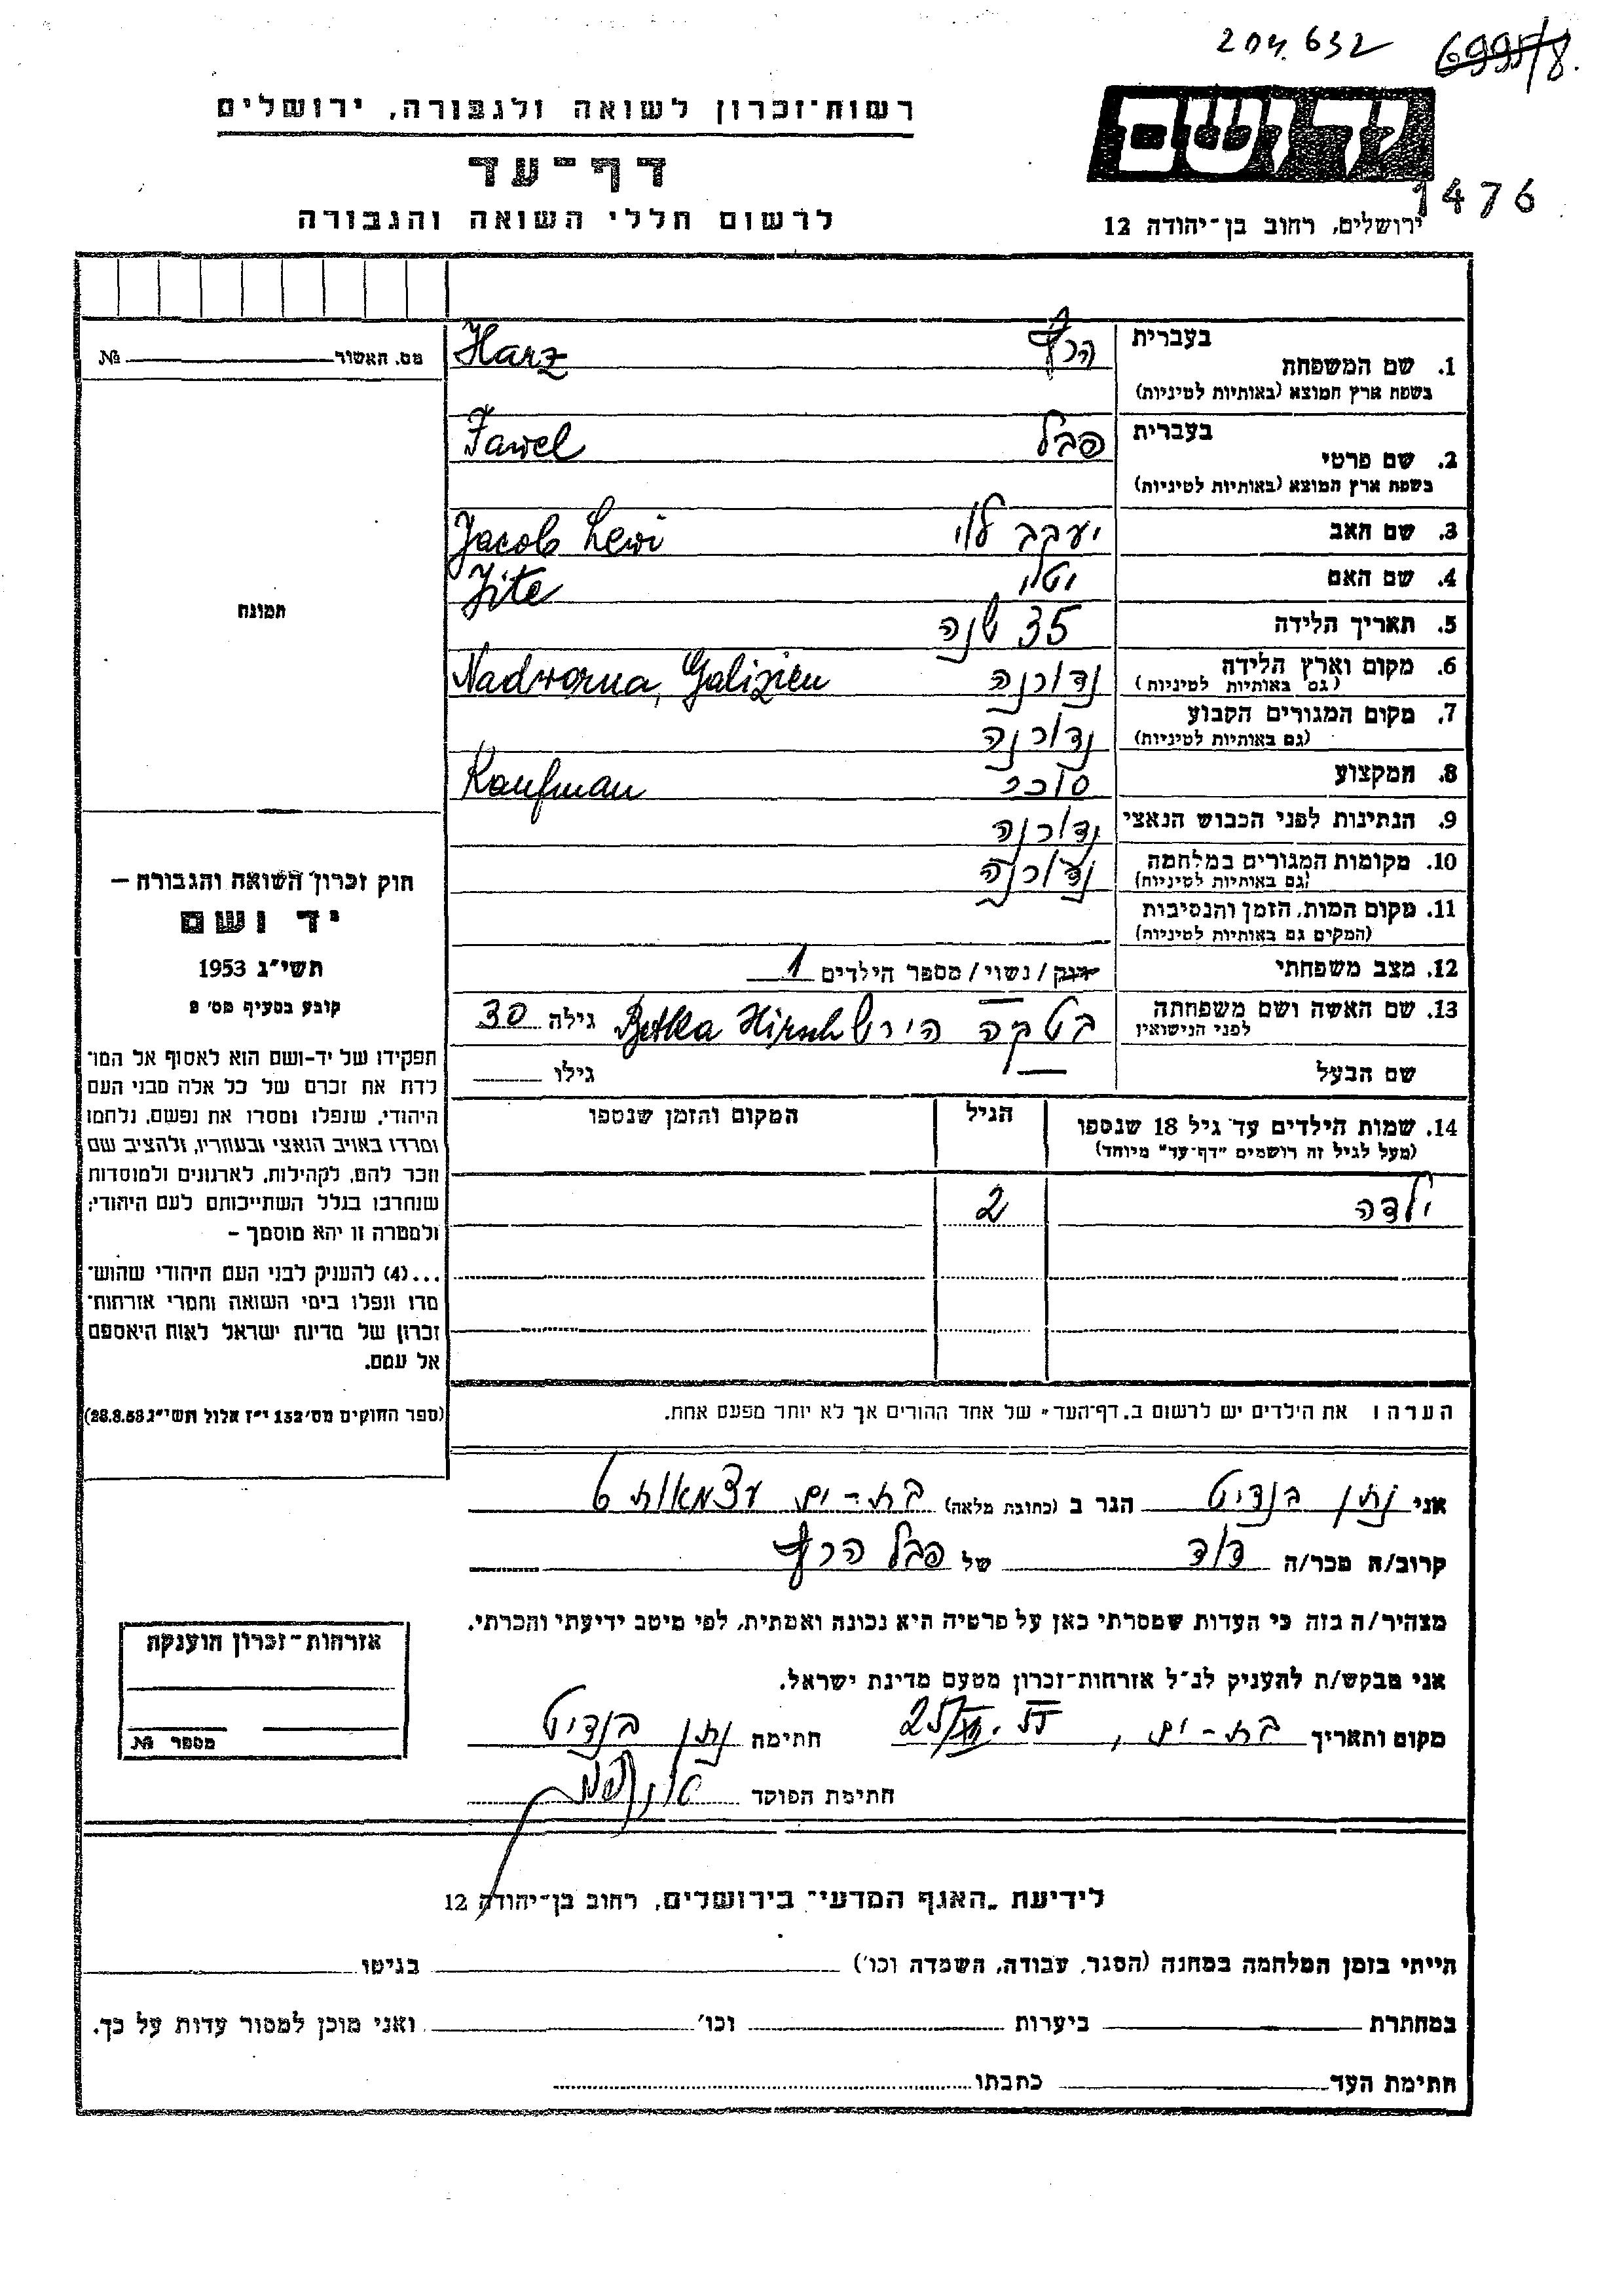 204.632 6995/8.
רשות-זכרון לשואה ולגבורה, ירושלים
יד ושם
דף-עד
1476
לרשום חללי השואה והגבורה
ירושלים, רחוב בן-יהודה 12
מס. האשור №
בעברית
1. שם המשפחה הרץ Harz
בשפת ארץ המוצא (באותיות לטיניות)
בעברית
2. שם פרטי פבל Fawel
בשפת ארץ המוצא (באותיות לטיניות)
3. שם האב יעקב לוי Jacob Lewi
4. שם האם יטי Jite
5. תאריך הלידה 35 שנה
6. מקום וארץ הלידה נדורנה Nadworna, Galizien
(גם באותיות לטיניות)
7. מקום המגורים הקבוע נדורנה
(גם באותיות לטיניות)
8. המקצוע סוחר Kaufman
9. הנתינות לפני הכבוש הנאצי נדורנה
10. מקומות המגורים במלחמה נדורנה
(גם באותיות לטיניות)
11. מקום המות, הזמן והנסיבות
(המקים גם באותיות לטיניות)
12. מצב משפחתי רווק/נשוי/מספר הילדים 1
13. שם האשה ושם משפחתה בטקה הירש Betka Hirsch גילה 30
לפני הנישואין
שם הבעל — גילו
14. שמות הילדים עד גיל 18 שנספו הגיל המקום והזמן שנספו
(מעל לגיל זה רושמים "דף-עד" מיוחד)
ילדה 2
הערה: את הילדים יש לרשום ב"דף-העד" של אחד ההורים אך לא יותר מפעם אחת.
תמונה
חוק זכרון השואה והגבורה –
יד ושם
תשי"ג 1953
קובע בסעיף מס' 2
תפקידו של יד-ושם הוא לאסוף אל המו־
לדת את זכרם של כל אלה מבני העם
היהודי, שנפלו ומסרו את נפשם, נלחמו
ומרדו באויב הנאצי ובעוזריו, ולהציב שם
וזכר להם, לקהילות, לארגונים ולמוסדות
שנחרבו בגלל השתייכותם לעם היהודי;
ולמטרה זו יהא מוסמך –
...(4) להעניק לבני העם היהודי שהוש־
מדו ונפלו בימי השואה והמרי אזרחות־
זכרון של מדינת ישראל לאות היאספם
אל עמם.
(ספר החוקים מס' 132 י"ז אלול תשי"ג 28.8.53)
אני נתן בנדיט הגר ב (כתובת מלאה) בת-ים עצמאות 6
קרוב/ה מכר/ה דוד של פבל הרץ
מצהיר/ה בזה כי העדות שמסרתי כאן על פרטיה היא נכונה ואמתית, לפי מיטב ידיעתי והכרתי.
אני מבקש/ת להעניק לנ"ל אזרחות-זכרון מטעם מדינת ישראל.
מקום ותאריך בת-ים, חתימה נתן בנדיט
חתימת הפוקד
אזרחות-זכרון הוענקה
מספר №
לידיעת "האגף המדעי" בירושלים, רחוב בן-יהודה 12
הייתי בזמן המלחמה במחנה (הסגר, עבודה, השמדה וכו') בגיטו
במחתרת ביערות וכו' ואני מוכן למסור עדות על כך.
חתימת העד כתבתו